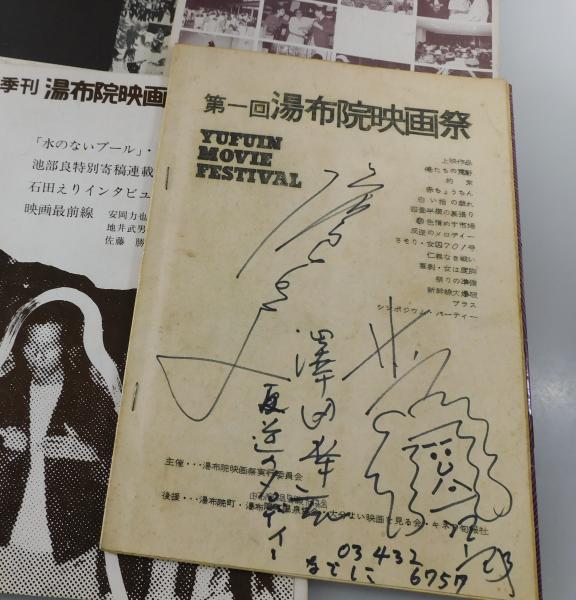 季刊 湯布院映画
「水のないプール」・
池部良特別寄稿連載
石田えりインタビュ
映画最前線 安岡力也
地井武男
佐藤 勝
第一回湯布院映画祭
YUFUIN
MOVIE
FESTIVAL
上映作品
俺たちの荒野
約 束
赤ちょうちん
白い指の戯れ
四畳半襖の裏張り
㊙色情めす市場
反逆のメロディー
さそり・女囚701号
仁義なき戦い
祭りの準備
新幹線大爆破
プラス
シンポジウム・パーティー
澤田幸弘
反逆のメロディー
主催・・・湯布院映画祭実行委員会
後援・・・湯布院町・
大分よい映画を見る会・キネマ旬報社
03 432
6757